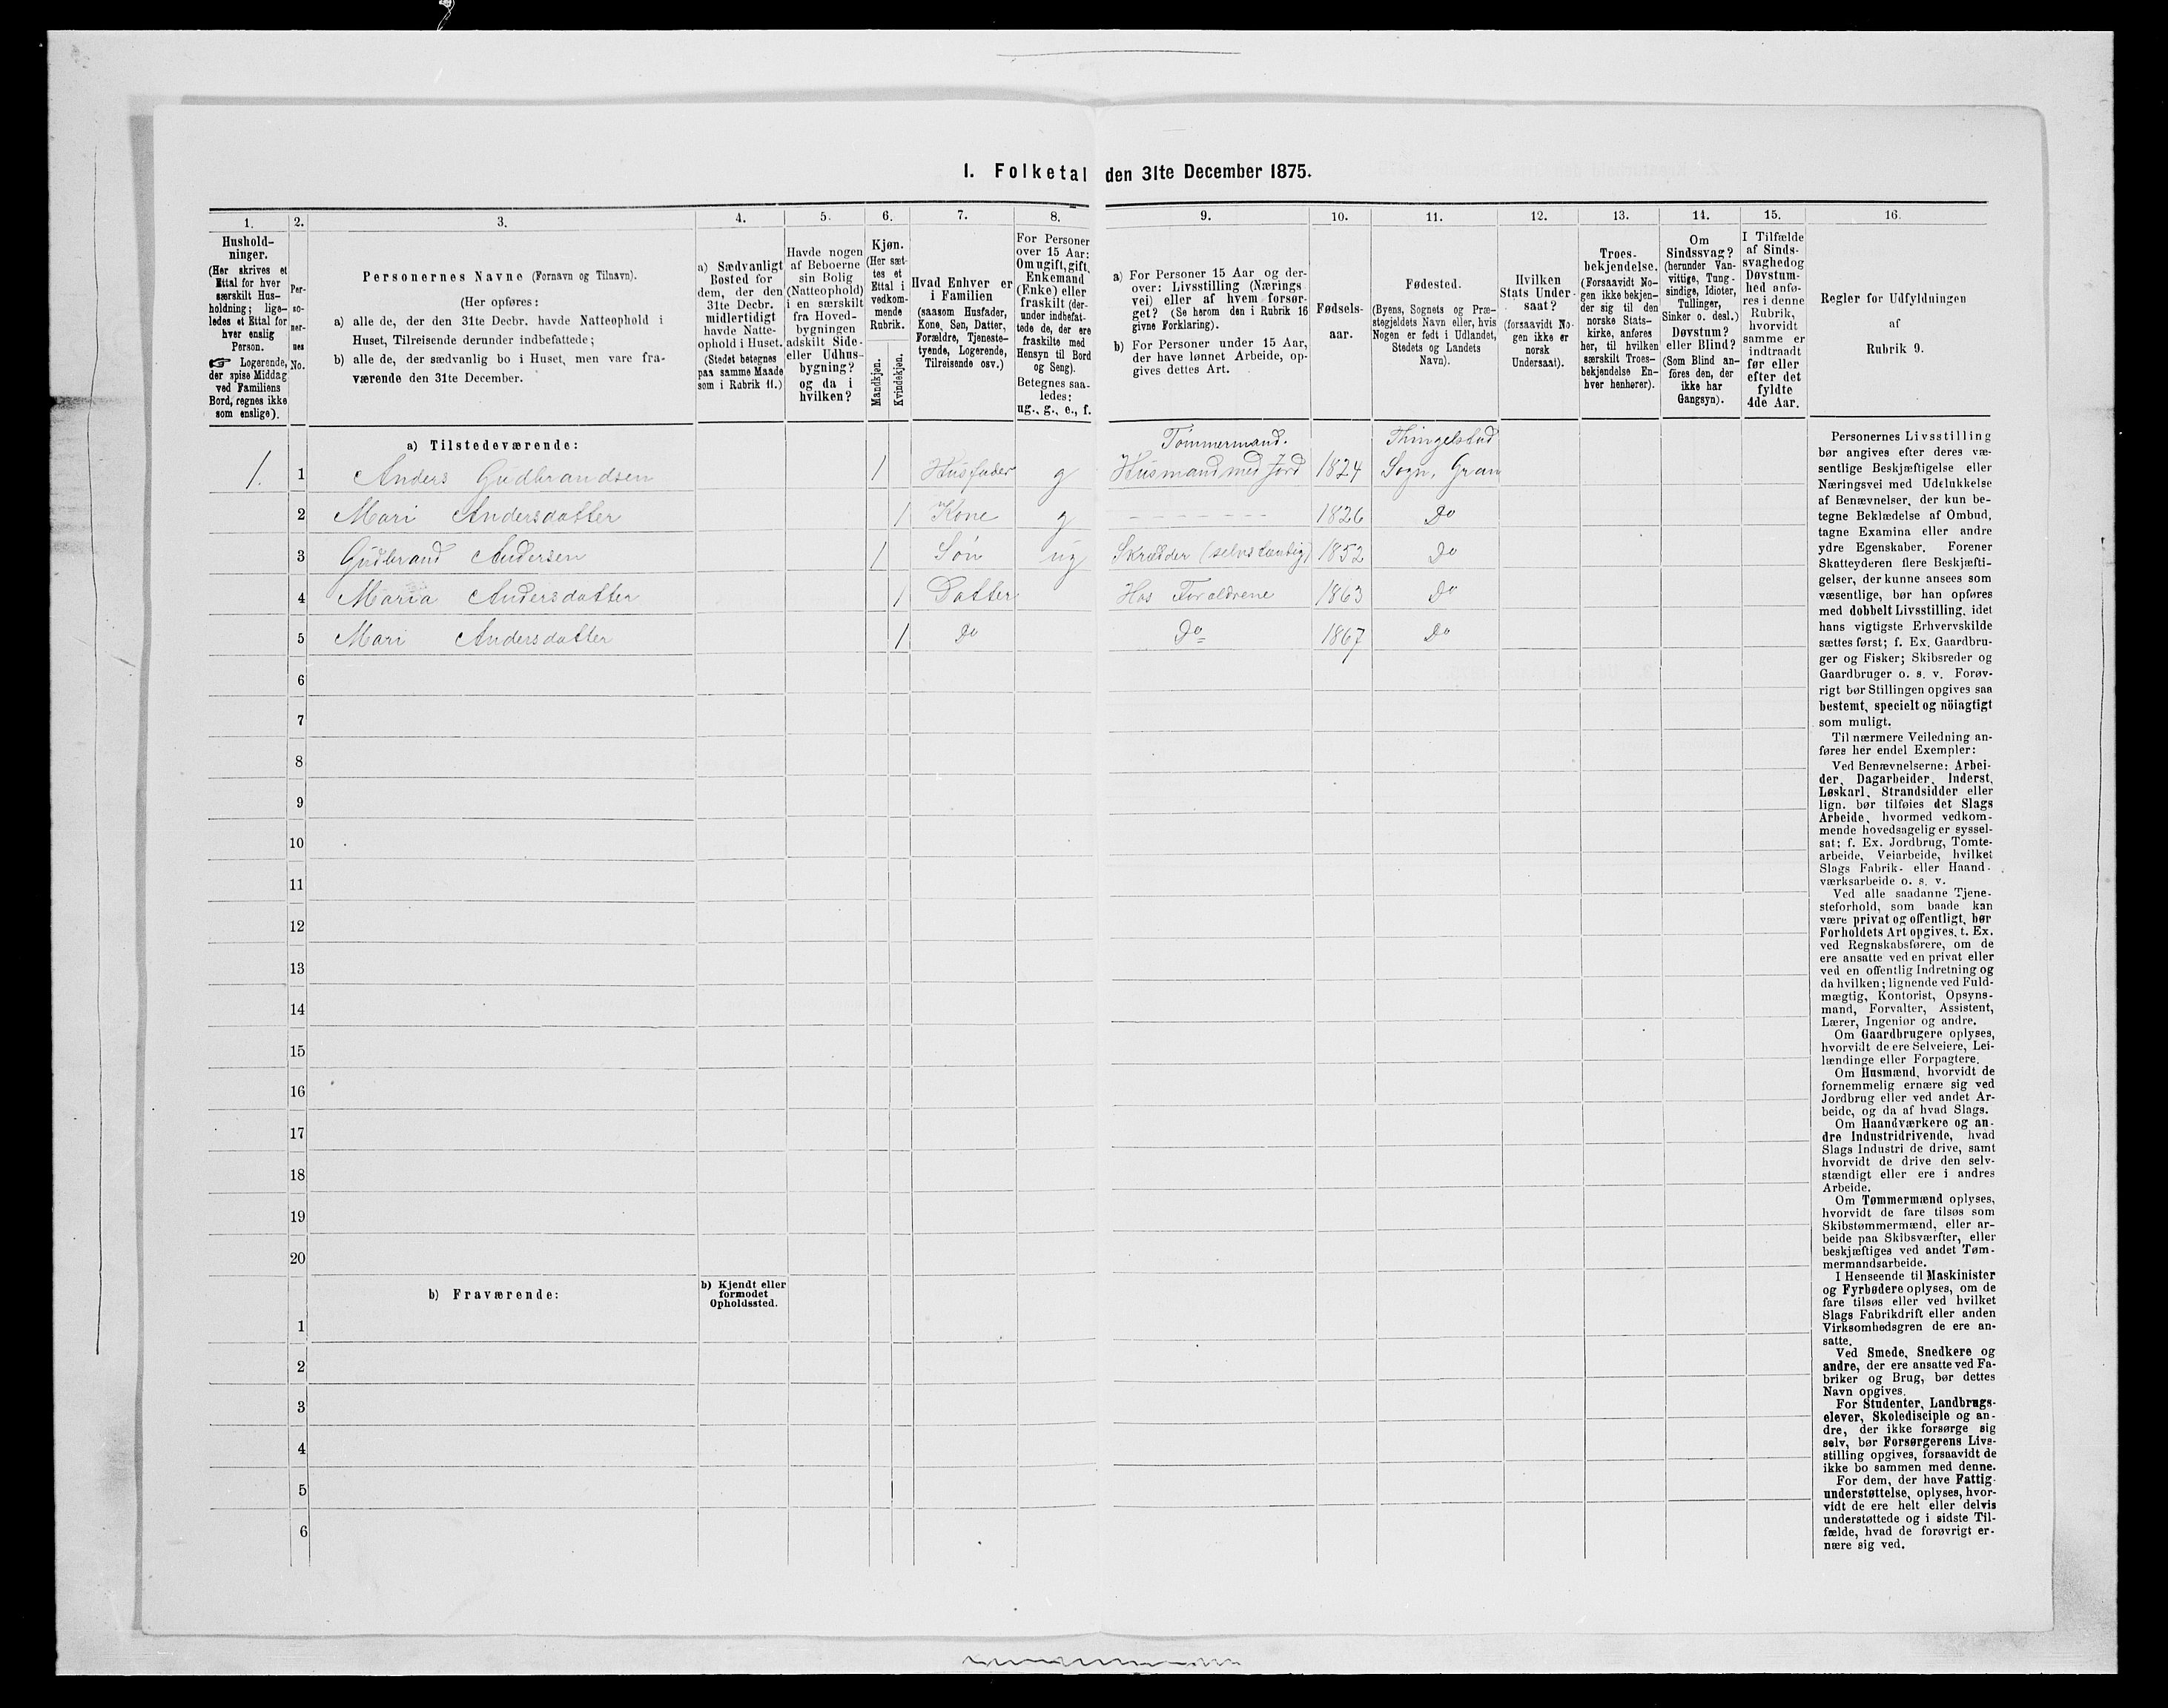 I. Folketal den 31te December 1875.
1.
Hushold-
ninger.
(Her skrives et
Ettal for hver
særskilt Hus-
holdning; lige-
ledes et Ettal for
hver enslig
Person.
☞ Logerende,
der spise Middag
ved Familiens
Bord, regnes ikke
som enslige).
2.
Per-
so-
ner-
nes
No.
3.
Personernes Navne (Fornavn og Tilnavn).
(Her opføres:
a) alle de, der den 31te Decbr. havde Natteophold i
Huset, Tilreisende derunder indbefattede;
b) alle de, der sædvanlig bo i Huset, men vare fra-
værende den 31te December.
4.
a) Sædvanligt
Bosted for
dem, der den
31te Decbr.
midlertidigt
havde Natte-
ophold i Huset.
(Stedet betegnes
paa samme Maade
som i Rubrik 11.)
5.
Havde nogen
af Beboerne
sin Bolig
(Natteophold)
i en særskilt
fra Hoved-
bygningen
adskilt Side-
eller Udhus-
bygning?
og da i
hvilken?
6.
Kjøn.
(Her sæt-
tes et
Ettal i
vedkom-
mende
Rubrik.
Mandkjøn.
Kvindekjøn.
7.
Hvad Enhver er
i Familien
(saasom Husfader,
Kone, Søn, Datter,
Forældre, Tjeneste-
tyende, Logerende,
Tilreisende osv.)
8.
For Personer
over 15 Aar:
Om ugift, gift,
Enkemand
(Enke) eller
fraskilt (der-
under indbefat-
tede de, der ere
fraskilte med
Hensyn til Bord
og Seng).
Betegnes saa-
ledes:
ug., g., e., f.
9.
a) For Personer 15 Aar og der-
over: Livsstilling (Nærings-
vei) eller af hvem forsør-
get? (Se herom den i Rubrik 16
givne Forklaring).
b) For Personer under 15 Aar,
der have lønnet Arbeide, op-
gives dettes Art.
10.
Fødsels-
aar.
11.
Fødested.
(Byens, Sognets og Præ-
stegjeldets Navn eller, hvis
Nogen er født i Udlandet,
Stedets og Landets
Navn).
12.
Hvilken
Stats Under-
saat?
(forsaavidt No-
gen ikke er
norsk
Undersaat).
13.
Troes-
bekjendelse.
(Forsaavidt No-
gen ikke bekjen-
der sig til den
norske Stats-
kirke, anføres
her, til hvilken
særskilt Troes-
bekjendelse En-
hver henhører).
14.
Om
Sindssvag?
(herunder Van-
vittige, Tung-
sindige, Idioter,
Tullinger,
Sinker o. desl.)
Døvstum?
eller Blind?
(Som Blind an-
føres den, der
ikke har
Gangsyn).
15.
I Tilfælde
af Sinds-
svaghed og
Døvstum-
hed anfø-
res i denne
Rubrik,
hvorvidt
samme er
indtraadt
før eller
efter det
fyldte
4de Aar.
16.
Regler for Udfyldningen
af
Rubrik 9.
a) Tilstedeværende:
Tømmermand. Thingelstad
1. 1 Anders Gudbrandsen 1 Husfader g Husmand med Jord 1824 Sogn, Gran
2 Mari Andersdatter 1 Kone g - - - - - - - - 1826 Do
3 Gudbrand Andersen 1 Søn ug Skrædder (selvstændig) 1852 Do
4 Maria Andersdatter 1 Datter Hos Forældrene 1863 Do
5 Mari Andersdatter 1 Do Do 1867 Do
6
7
8
9
10
11
12
13
14
15
16
17
18
19
20
b) Fraværende:
b) Kjendt eller
formodet
Opholdssted.
1
2
3
4
5
6
Personernes Livsstilling
bør angives efter deres væ-
sentlige Beskjæftigelse eller
Næringsvei med Udelukkelse
af Benævnelser, der kun be-
tegne Beklædelse af Ombud,
tagne Examina eller andre
ydre Egenskaber. Forener
Skatteyderen flere Beskjæfti-
gelser, der kunne ansees som
væsentlige, bør han opføres
med dobbelt Livsstilling, idet
hans vigtigste Erhvervskilde
sættes først; f. Ex. Gaardbru-
ger og Fisker; Skibsreder og
Gaardbruger o. s. v. Forøv-
rigt bør Stillingen opgives saa
bestemt, specielt og nöiagtigt
som muligt.
Til nærmere Veiledning an-
føres her endel Exempler:
Ved Benævnelserne: Arbei-
der, Dagarbeider, Inderst,
Løskarl, Strandsidder eller
lign. bør tilføies det Slags
Arbeide, hvormed vedkom-
mende hovedsagelig er syssel-
sat; f. Ex. Jordbrug, Tomte-
arbeide, Veiarbeide, hvilket
Slags Fabrik- eller Haand-
værksarbeide o. s. v.
Ved alle saadanne Tjene-
steforhold, som baade kan
være privat og offentligt, bør
Forholdets Art opgives, t. Ex.
ved Regnskabsførere, om de
ere ansatte ved en privat eller
ved en offentlig Indretning og
da hvilken; lignende ved Fuld-
mægtig, Kontorist, Opsyns-
mand, Forvalter, Assistent,
Lærer, Ingeniør og andre.
Om Gaardbrugere oplyses,
hvorvidt de ere Selveiere, Lei-
lændinge eller Forpagtere.
Om Husmænd, hvorvidt de
fornemmelig ernære sig ved
Jordbrug eller ved andet Ar-
beide, og da af hvad Slags.
Om Haandværkere og an-
dre Industridrivende, hvad
Slags Industri de drive, samt
hvorvidt de drive den selv-
stændigt eller ere i andres
Arbeide.
Om Tømmermænd oplyses,
hvorvidt de fare tilsøs som
Skibstømmermænd, eller ar-
beide paa Skibsværfter, eller
beskjæftiges ved andet Tøm-
mermandsarbeide.
I Henseende til Maskinister
og Fyrbødere oplyses, om de
fare tilsøs eller ved hvilket
Slags Fabrikdrift eller anden
Virksomhedsgren de ere an-
satte.
Ved Smede, Snedkere og
andre, der ere ansatte ved Fa-
briker og Brug, bør dettes
Navn opgives.
For Studenter, Landbrugs-
elever, Skoledisciple og an-
dre, der ikke forsørge sig
selv, bør Forsørgerens Livs-
stilling opgives, forsaavidt de
ikke bo sammen med denne.
For dem, der have Fattig-
understøttelse, oplyses, hvor-
vidt de ere helt eller delvis
understøttede og i sidste Til-
fælde, hvad de forøvrigt er-
nære sig ved.